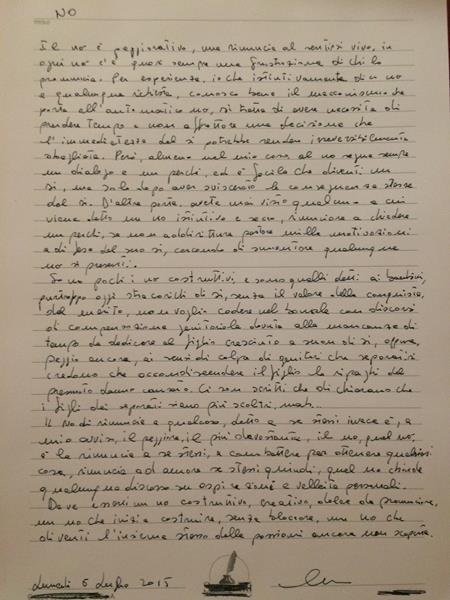 NO
Il no è peggiorativo, una rinuncia al sentirsi vivo, in
ogni no c'è quasi sempre una frustrazione di chi lo
pronuncia. Per esperienza, io che istintivamente dico no
a qualunque richiesta, conosco bene il meccanismo che
porta all'automatico no, si tratta di avere necessità di
prendere tempo e non affrettare una decisione che
l'immediatezza del sì potrebbe rendere irreversibilmente
sbagliata. Però, almeno nel mio caso, al no segue sempre
un dialogo e un perché, ed è facile che diventi un
sì, ma solo dopo aver sviscerato le conseguenze stesse
del sì. D'altra parte, avete mai visto qualcuno a cui
viene detto un no istintivo e secco, rinunciare a chiedere
un perché, se non addirittura portare mille motivazioni
a difesa del suo sì, cercando di smontare qualunque
no si presenti.
Sono pochi i no costruttivi e sono quelli detti ai bambini,
purtroppo oggi stracarichi di sì, senza il valore della conquista,
del merito, non voglio cadere nel banale con discorsi
di compensazione genitoriale dovuta alla mancanza di
tempo da dedicare al figlio cresciuto a suon di sì, oppure,
peggio ancora, ai sensi di colpa di genitori che separatisi
credono che accondiscendere il figlio lo ripaghi del
presunto danno causato. Ci son scritti che dichiarano che
i figli dei separati siano più scolti, mah.
Il no di rinuncia a qualcosa, detto a se stessi invece è, a
mio avviso, il peggiore, il più devastante, il no, quel no,
è la rinuncia a se stessi, a combattere per ottenere qualsiasi
cosa, rinuncia ad amare se stessi quindi, quel no chiude
qualunque discorso su aspirazioni e velleità personali.
Deve esserci un no costruttivo, creativo, dolce da pronunciare,
un no che inizi a costruire, senza bloccare, un no che
diventi l'insieme stesso delle passioni ancora non scoperte.
Lunedì 6 Luglio 2015